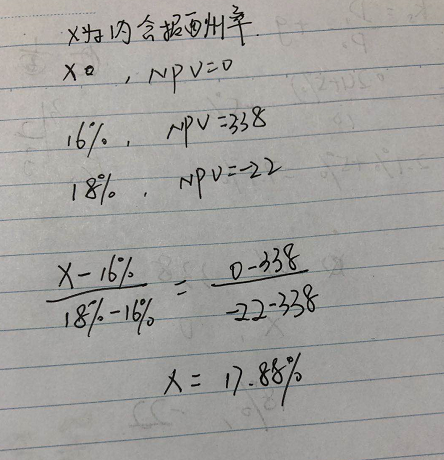 X为内含报酬率.
X , NPV=0
16%, NPV=338
18%, NPV=-22
X-16% / 18%-16% = 0-338 / -22-338
X = 17.88%